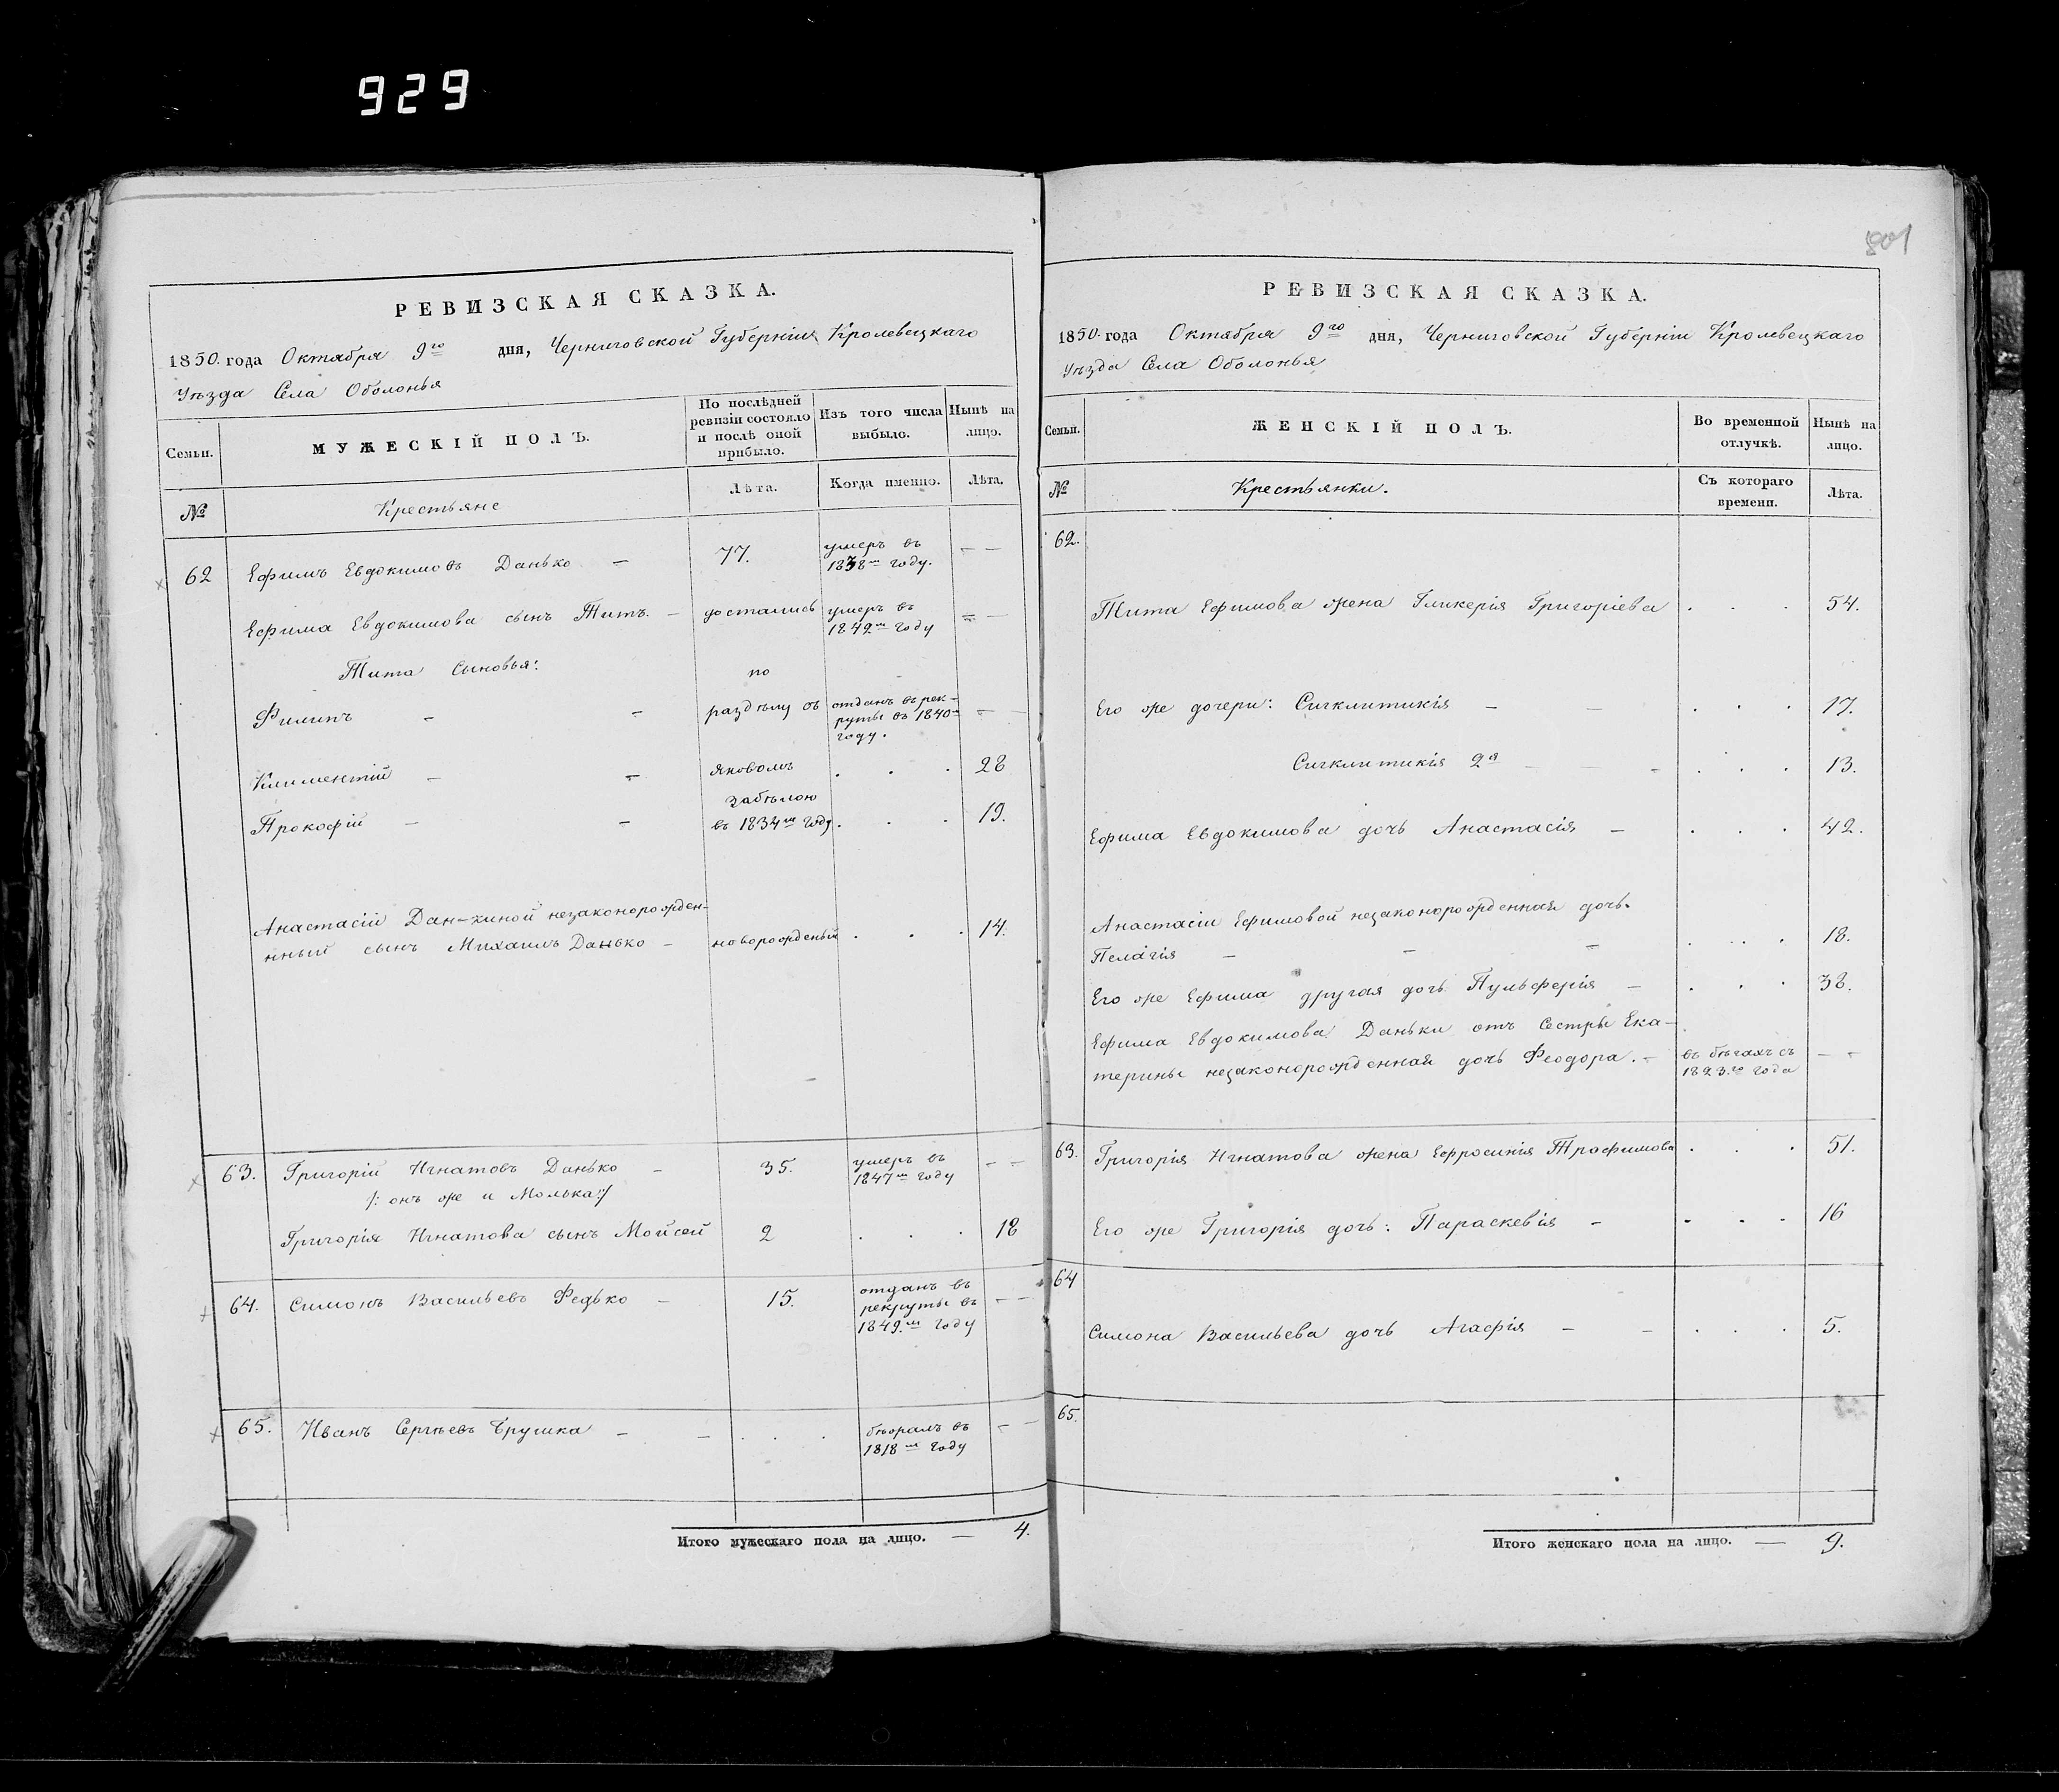 929
801
РЕВИЗСКАЯ СКАЗКА.
1850. года Октября 9го дня, Черниговской Губерніи Кролевецкаго
Уѣзда Села Оболонья
Семьи. МУЖЕСКІЙ ПОЛЪ. По послѣдней ревизіи состояло и послѣ оной прибыло. Изъ того числа выбыло. Нынѣ на лицо.
№ Крестьяне Лѣта. Когда именно. Лѣта.
62 Ефимъ Евдокимовъ Данько — 77. умеръ въ 1838м году. — —
Ефима Евдокимова сынъ Титъ. — достались умеръ въ 1849м году — —
Тита Сыновья: по
Филипъ — — раздѣлу съ отданъ въ рек-
руты въ 1840м
году. —
Климентій — — Яковомъ . . . 28
Забѣлою
Прокофій — — въ 1834м году . . . 19.
Анастасіи Дан-киной незаконорожден-
нный сынъ Михаилъ Данько — новорожденый . . . 14.
63. Григорій Игнатовъ Данько — 35. умеръ въ 1847м году — —
/: онъ же и Молька :/
Григорія Игнатова сынъ Мойсей 2 . . . 18
64. Симонъ Васильевъ Федько — 15. отданъ въ
рекруты въ
1849.м году — —
65. Иванъ Сергѣевъ Брушка — — . . . бѣжалъ въ
1818м году — —
Итого мужескаго пола на лицо. — 4.
РЕВИЗСКАЯ СКАЗКА.
1850. года Октября 9го дня, Черниговской Губерніи Кролевецкаго
Уѣзда Села Оболонья
Семьи. ЖЕНСКІЙ ПОЛЪ. Во временной отлучкѣ. Нынѣ на лицо.
№ Крестьянки. Съ котораго времени. Лѣта.
62.
Тита Ефимова жена Гликерія Григоріева . . . 54.
Его же дочери: Сигклитикія — — . . . 17.
Сигклитикія 2я — — — . . . 13.
Ефима Евдокимова дочь Анастасія — . . . 42.
Анастасіи Ефимовой незаконорожденная дочь.
Пелагія — — — . . . 18.
Его же Ефима другая дочь Пульферія — . . . 38.
Ефима Евдокимова Даньки отъ Сестры Ека-
терины незаконорожденная дочь Феодора. — въ бѣгахъ съ
1823.го года — —
63. Григорія Игнатова жена Ефросинія Трофимова . . . 51.
Его же Григорія дочь: Параскевія — . . . 16
64
Симона Васильева дочь Агафія — — . . . 5.
65.
Итого женскаго пола на лицо. — 9.